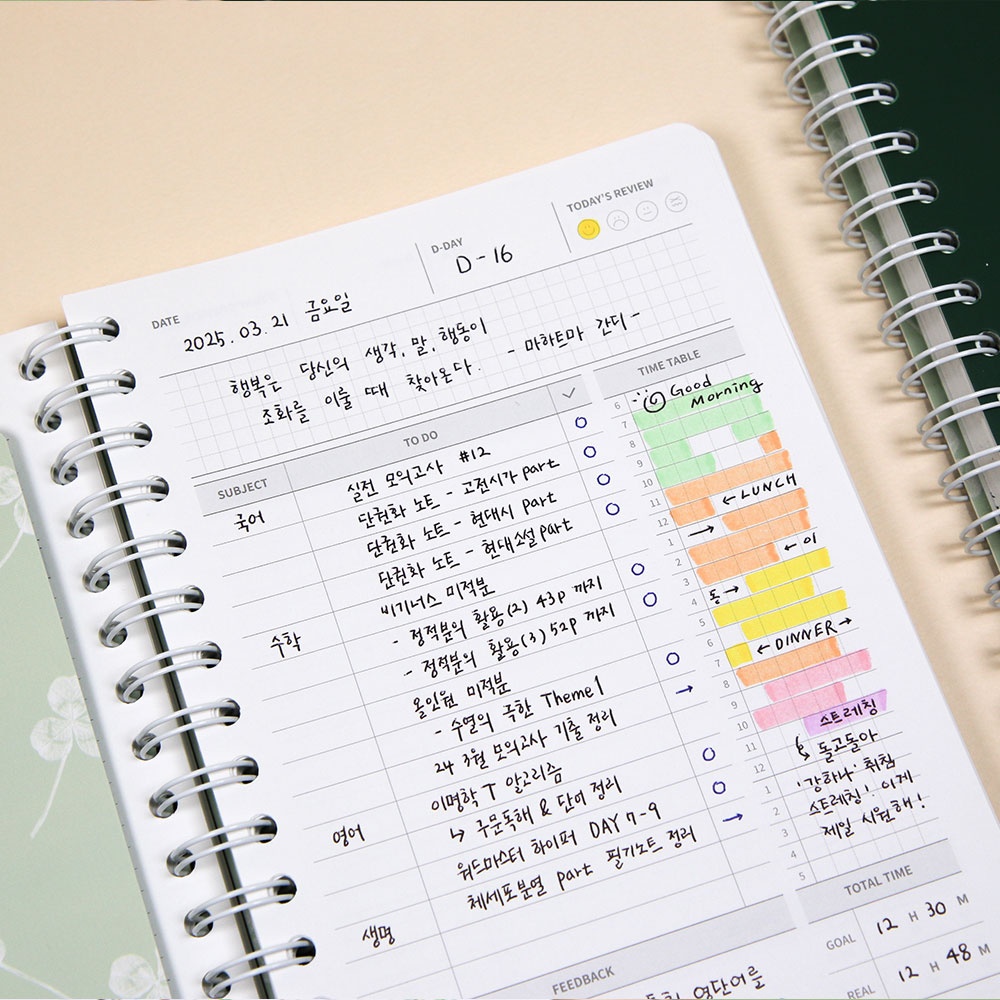 DATE
2025.03.21 금요일
D-DAY
D-16
TODAY'S REVIEW
행복은 당신의 생각, 말, 행동이
조화를 이룰 때 찾아온다. - 마하트마 간디 -
SUBJECT
TO DO
국어
실전 모의고사 #12
단권화 노트 - 고전시가 part
단권화 노트 - 현대시 part
단권화 노트 - 현대소설 part
수학
비기너스 미적분
- 정적분의 활용(2) 43p 까지
- 정적분의 활용(3) 52p 까지
올인원 미적분
- 수열의 극한 Theme 1
24 3월 모의고사 기출 정리
영어
이명학T 알고리즘
↳ 주문독해 & 단어 정리
워드마스터 하이퍼 DAY 7-9
생명
체세포분열 part 필기노트 정리
TIME TABLE
6 Good
Morning
7
8
9
10
11 ← LUNCH
12 →
1
2 ← 이
3
4 동 →
5
6 ← DINNER →
7
8
9
10 스트레칭
11 돌고돌아
12 '강하나' 취침
1 스트레칭! 이게
2 제일 시원해!
3
4
5
TOTAL TIME
GOAL 12 H 30 M
REAL 12 H 48 M
FEEDBACK
영단어를